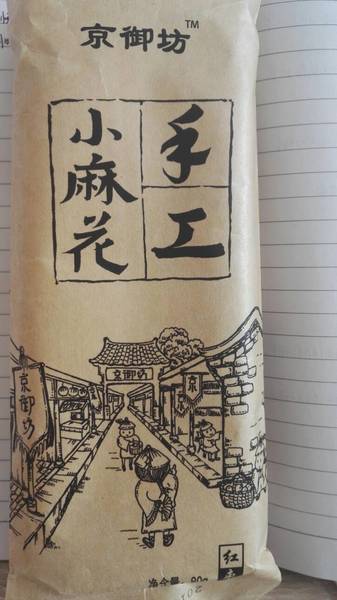 京御坊™
手工
小麻花
京御坊
京御坊
京
净含量：90g
红